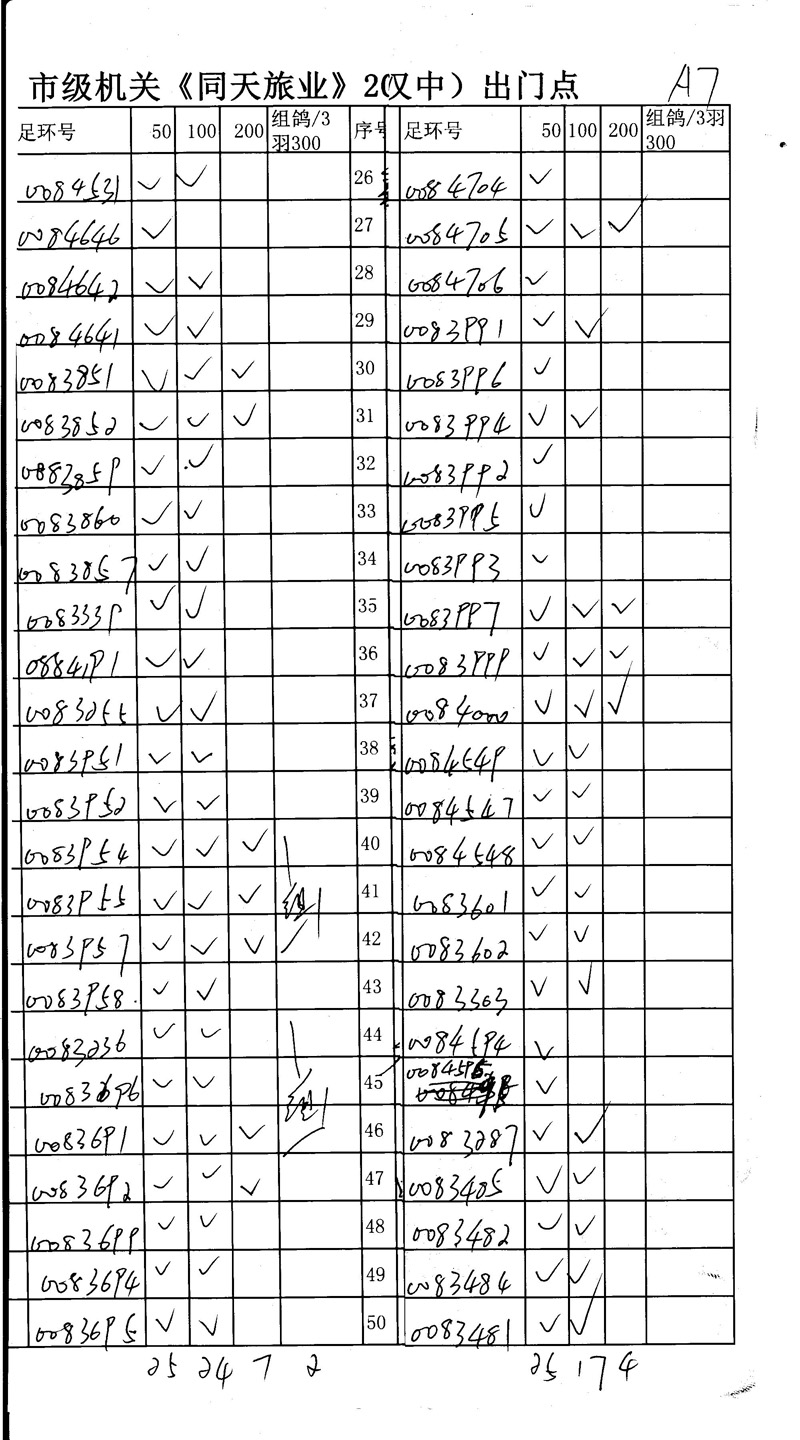 市级机关《同天旅业》2(汉中）出门点 A7
足环号 50 100 200 组鸽/3羽300 序号 足环号 50 100 200 组鸽/3羽300
0084531 ✓ ✓ 26 0084704 ✓
0084646 ✓ 27 0084705 ✓ ✓ ✓
0084642 ✓ ✓ 28 0084706 ✓
0084641 ✓ ✓ 29 0083991 ✓ ✓
0083851 ✓ ✓ ✓ 30 0083996 ✓
0083852 ✓ ✓ ✓ 31 0083994 ✓ ✓
0083859 ✓ ✓ 32 0083992 ✓
0083860 ✓ ✓ 33 0083995 ✓
0083857 ✓ ✓ 34 0083993 ✓
0083339 ✓ ✓ 35 0083997 ✓ ✓ ✓
0884191 ✓ ✓ 36 0083999 ✓ ✓ ✓
0083255 ✓ ✓ 37 0084000 ✓ ✓ ✓
0083951 ✓ ✓ 38 0084549 ✓ ✓
0083952 ✓ ✓ 39 0084547 ✓ ✓
0083954 ✓ ✓ ✓ 40 0084548 ✓ ✓
0083955 ✓ ✓ ✓ 组1 41 0083601 ✓ ✓
0083957 ✓ ✓ ✓ 42 0083602 ✓ ✓
0083958 ✓ ✓ 43 0083303 ✓ ✓
0083236 ✓ ✓ 44 0084594 ✓
0083696 ✓ ✓ 组1 45 0084595 ✓
0083691 ✓ ✓ ✓ 46 0083287 ✓ ✓
0083692 ✓ ✓ ✓ 47 0083485 ✓ ✓
0083699 ✓ ✓ 48 0083482 ✓ ✓
0083694 ✓ ✓ 49 0083484 ✓ ✓
0083695 ✓ ✓ 50 0083481 ✓ ✓
25 24 7 2 25 17 4